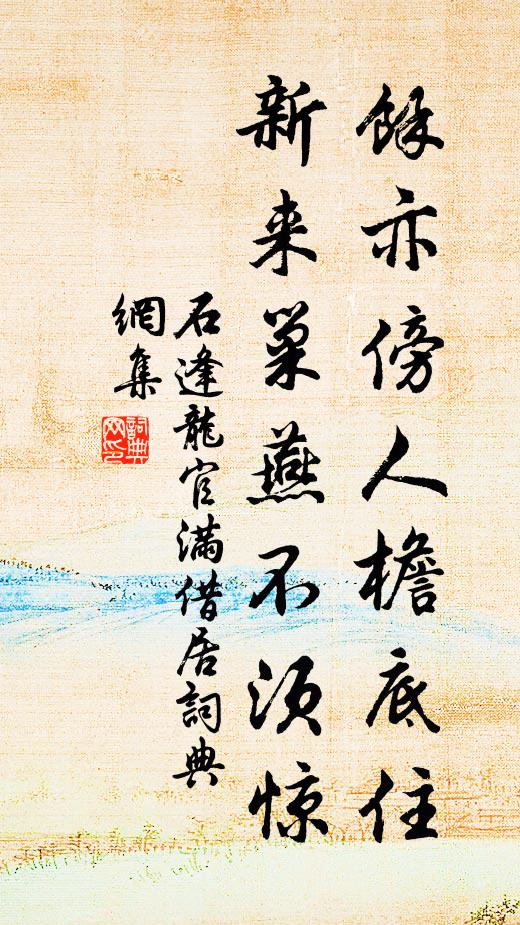 餘亦傍人檐底住
新来巢燕不須惊
石逢龍官满借居詞典
網集
詞典网印